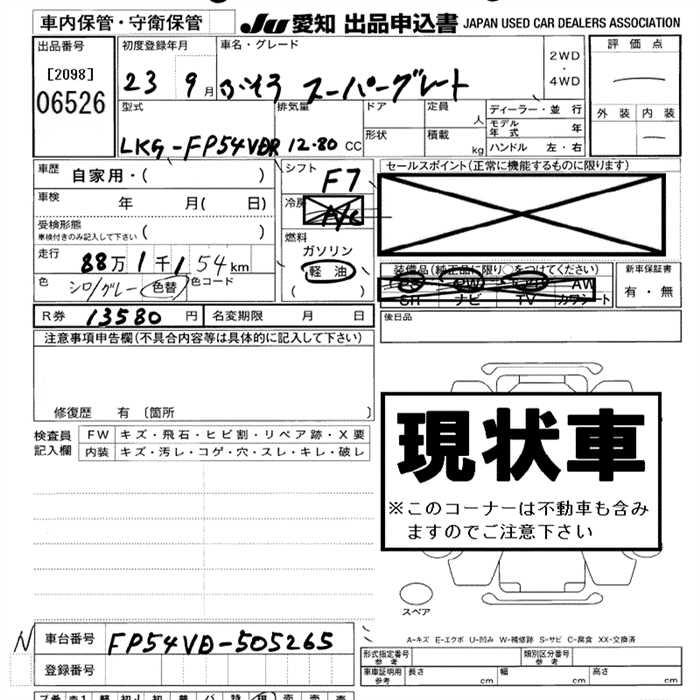 車内保管・守衛保管 JU 愛知 出品申込書 JAPAN USED CAR DEALERS ASSOCIATION
出品番号 初度登録年月 車名・グレード 2WD・4WD 評価点
[2098] 06526 23 9月 スーパーグレート
外装 内装
型式 排気量 ドア 定員 人 ディーラー・並行
LKG-FP54VDR 12.80 CC 形状 積載 kg モデル年式 年
ハンドル 左・右
車歴 自家用・( ) シフト F7 セールスポイント(正常に機能するものに限ります)
車検 年 月( 日) 冷房 A/C
受検形態 車検付きのみ記入して下さい ( ) 燃料 ガソリン
走行 88万1千154km 軽油 ( )
装備品(純正品に限り○をつけてください) 新車保証書
色 シロ/グレー 色替 色コード
PS PW エアB AW 有・無
SR ナビ TV カワシート
R券 13580円 名変期限 月 日 後日品
注意事項申告欄(不具合内容等は具体的に記入して下さい)
修復歴 有 〔箇所 〕
検査員記入欄 FW キズ・飛石・ヒビ割・リペア跡・X要
内装 キズ・汚レ・コゲ・穴・スレ・キレ・破レ
現状車
※このコーナーは不動車も含み
ますのでご注意下さい
スペア
N 車台番号 FP54VD-505265
A-キズ E-エクボ U-凹み W-補修跡 S-サビ C-腐食 XX-交換済
登録番号
形式指定番号 参考 類別区分番号 参考
車庫証明用 参考 長さ cm 幅 cm 高さ cm